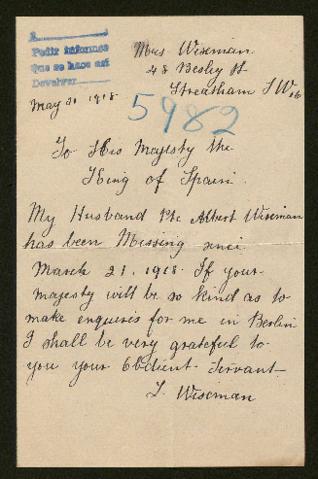 A
Pedir informes
Que se hace así
Devolver
Mrs Wiseman
48 Besley St
Streatham S.W.16
May 31. 1918.
5982
To His Majesty the
King of Spain.
My Husband Pte Albert Wiseman
has been Missing since
March 21. 1918. If your
majesty will be so kind as to
make enqueris for me in Berlin
I shall be very grateful to
you your Obedient Servant
L Wiseman